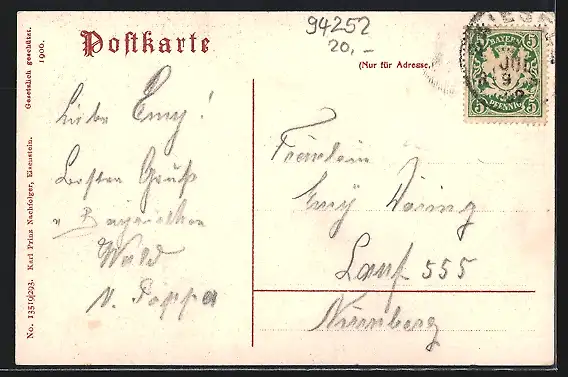 94252
20,-
Postkarte
(Nur für Adresse.)
BAYERN
5 5
5 PFENNIG 5
Liebe Emy!
Besten Gruß
v Bayrischen
Wald
v. Poppa
Fräulein
Emy Döring
Lauf 555
Nürnberg
No. 13510/293. Karl Prinz Nachfolger, Eisenstein. Gesetzlich geschützt.
1906.